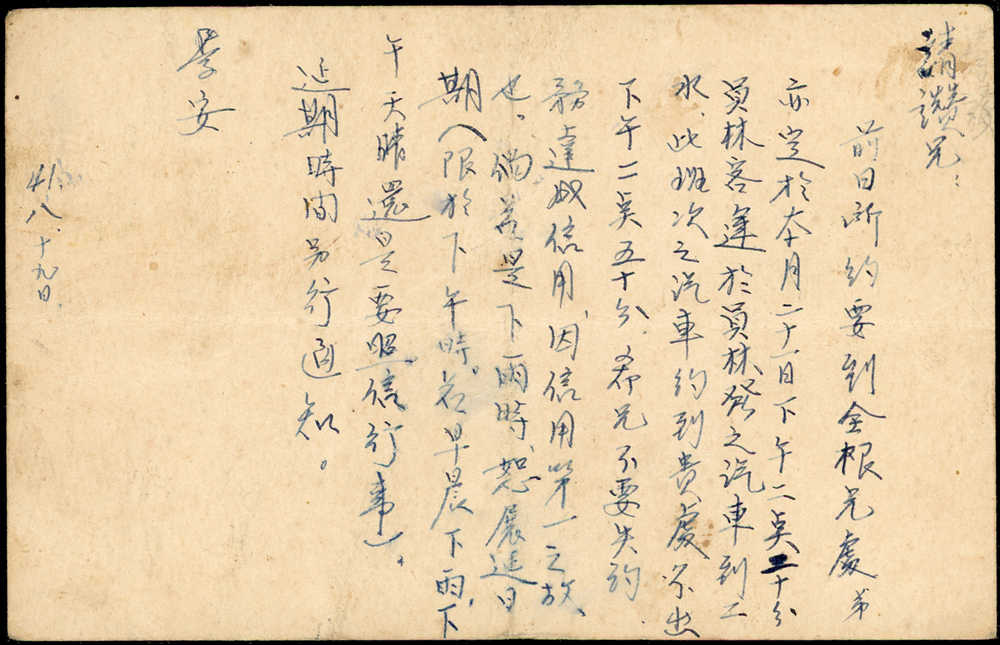 請讚兄：
前日所約要到金根兄處弟
亦定於本月二十一日下午二点二十分
員林客運於員林發之汽車到二
水、此班次之汽車約到貴處不出
下午二点五十分、希兄不要失約
務達成信用、因信用第一之故、
也。倘若是下雨時、恕展延日
期（限於下午時。若早晨下雨、下
午天晴還是要照信行事）。
延期時間另行通知。
學安
41.八.十九日.